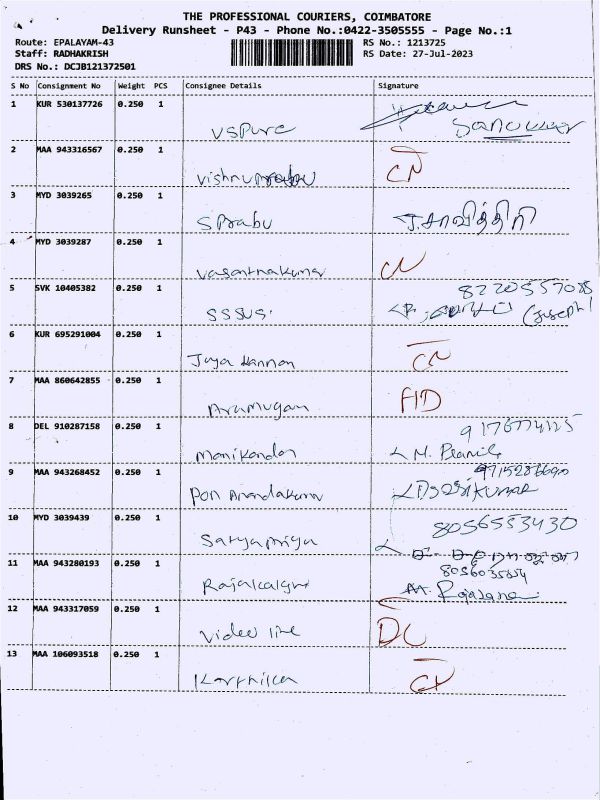 THE PROFESSIONAL COURIERS, COIMBATORE
Delivery Runsheet - P43 - Phone No.:0422-3505555 - Page No.:1
Route: EPALAYAM-43 RS No.: 1213725
Staff: RADHAKRISH RS Date: 27-Jul-2023
DRS No.: DCJB121372501
S No Consignment No Weight PCS Consignee Details Signature
1 KUR 530137726 0.250 1
vspure
2 MAA 943316567 0.250 1
vishnuprabu CN
3 MYD 3039265 0.250 1
SPrabu J.சாவித்திரி
4 MYD 3039287 0.250 1
vasanthakumar CN
5 SVK 10405382 0.250 1
SSSUS. (Joseph)
6 KUR 695291004 0.250 1
Jaya kannan CN
7 MAA 860642855 0.250 1
Arumugam
8 DEL 910287158 0.250 1
Manikandan M.
9 MAA 943268452 0.250 1
Pon Anandakumar
10 MYD 3039439 0.250 1 8056553430
Satyapriya
11 MAA 943280193 0.250 1
12 MAA 943317059 0.250 1
video line DL
13 MAA 106093518 0.250 1
Karthika